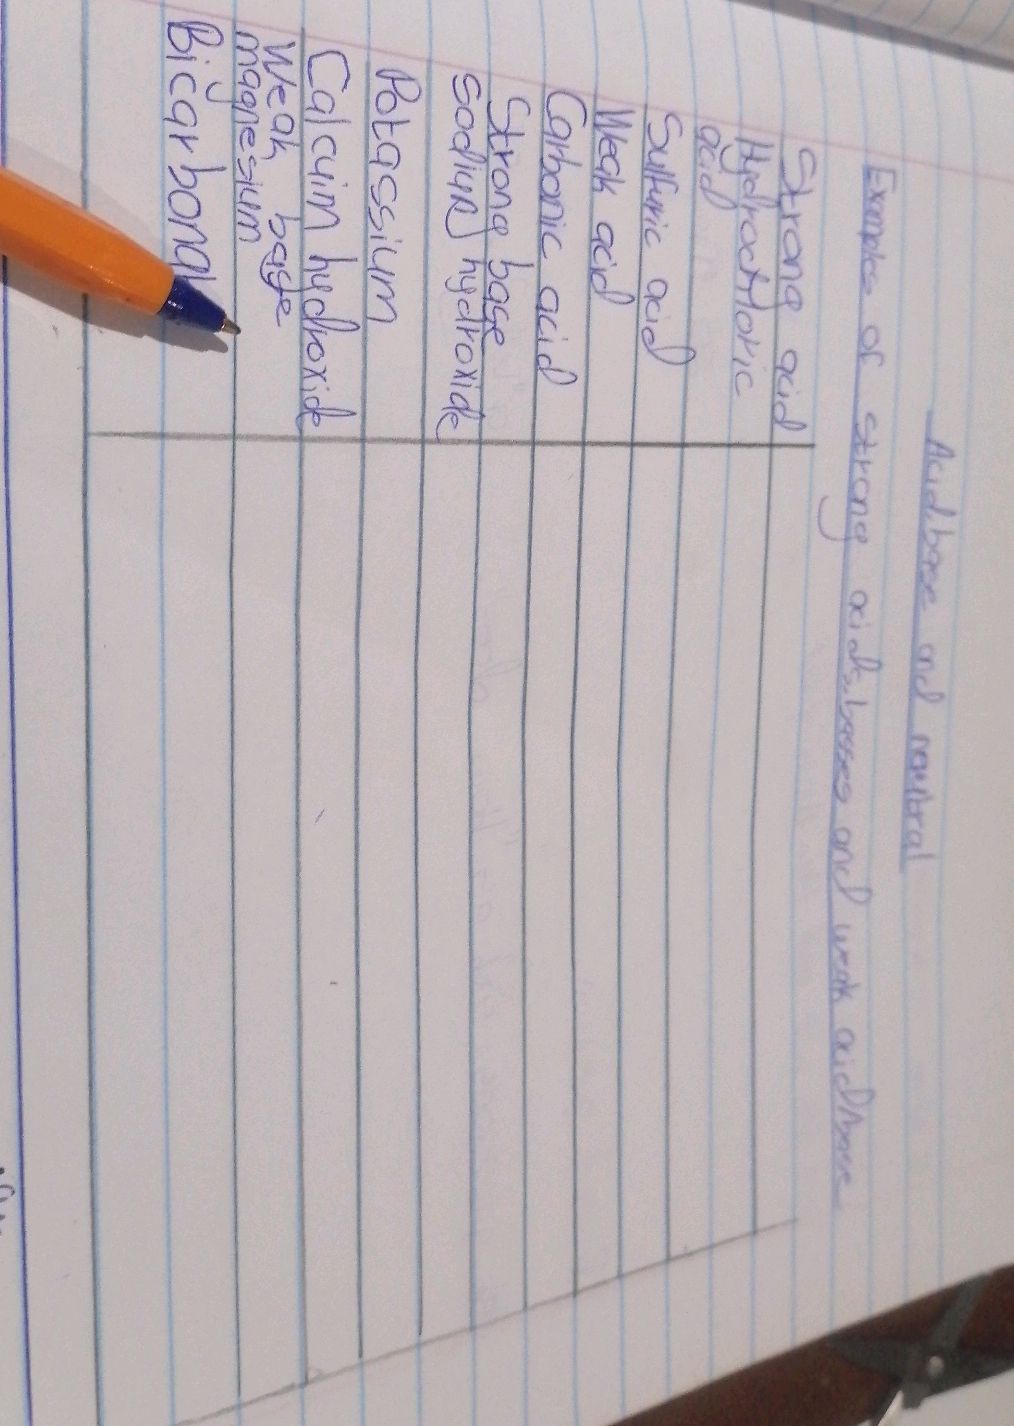 Acid,base and neutral
Examples of strong acids,basses and weak acid/base
Strong acid
Hydrochloric
acid
Sulfuric acid
Weak acid
Carbonic acid
Strong base
Sodium hydroxide
Potassium
Calcuim hydroxide
Weak base
magnesium
Bicarbona